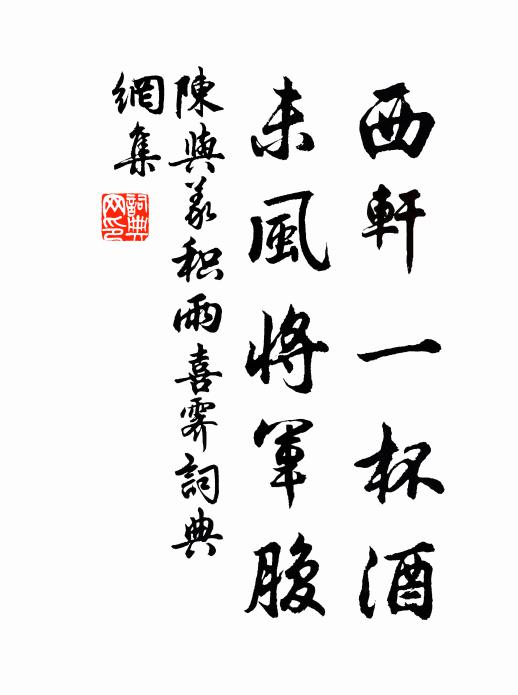 西軒一杯酒
未風將軍腹
陳與義积雨喜霽詞典
網集
詞典網印